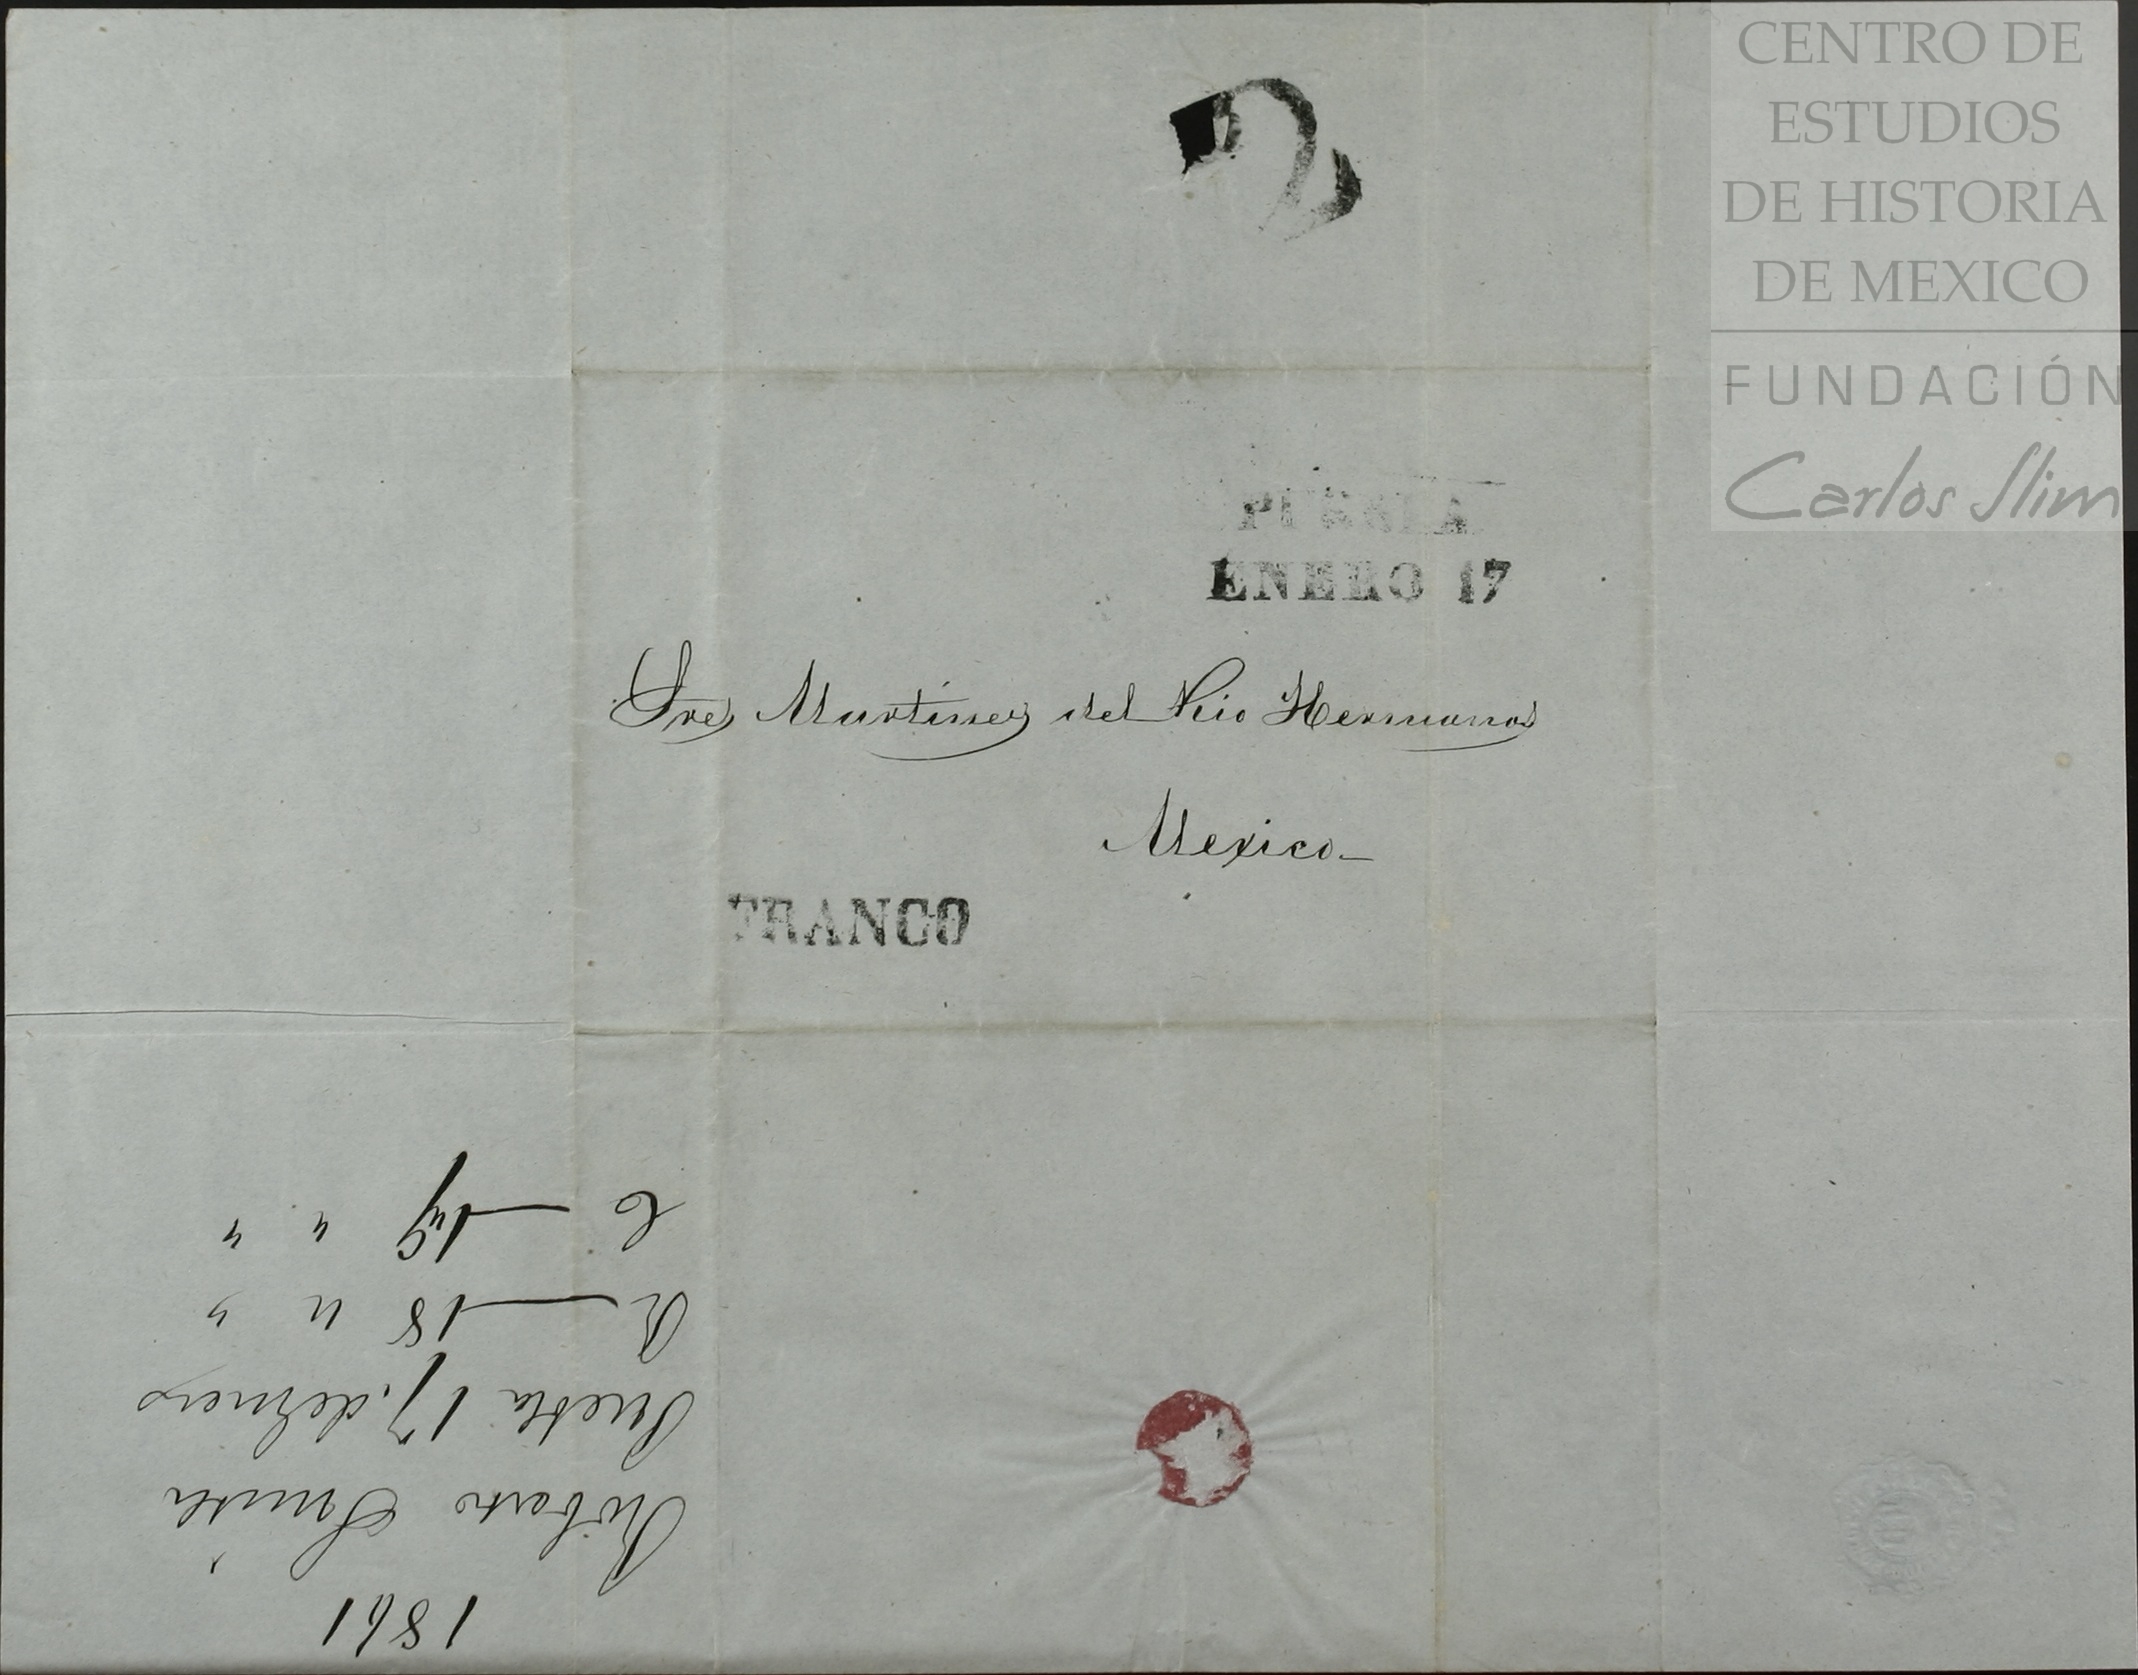 CENTRO DE
ESTUDIOS
DE HISTORIA
DE MEXICO
FUNDACIÓN
Carlos Slim
2
PUEBLA
ENERO 17
Sres Martinez del Rio Hermanos
Mexico
FRANCO
1861
Roberto Smith
Puebla 17 de Enero
R — 18 " "
C — 19 " "